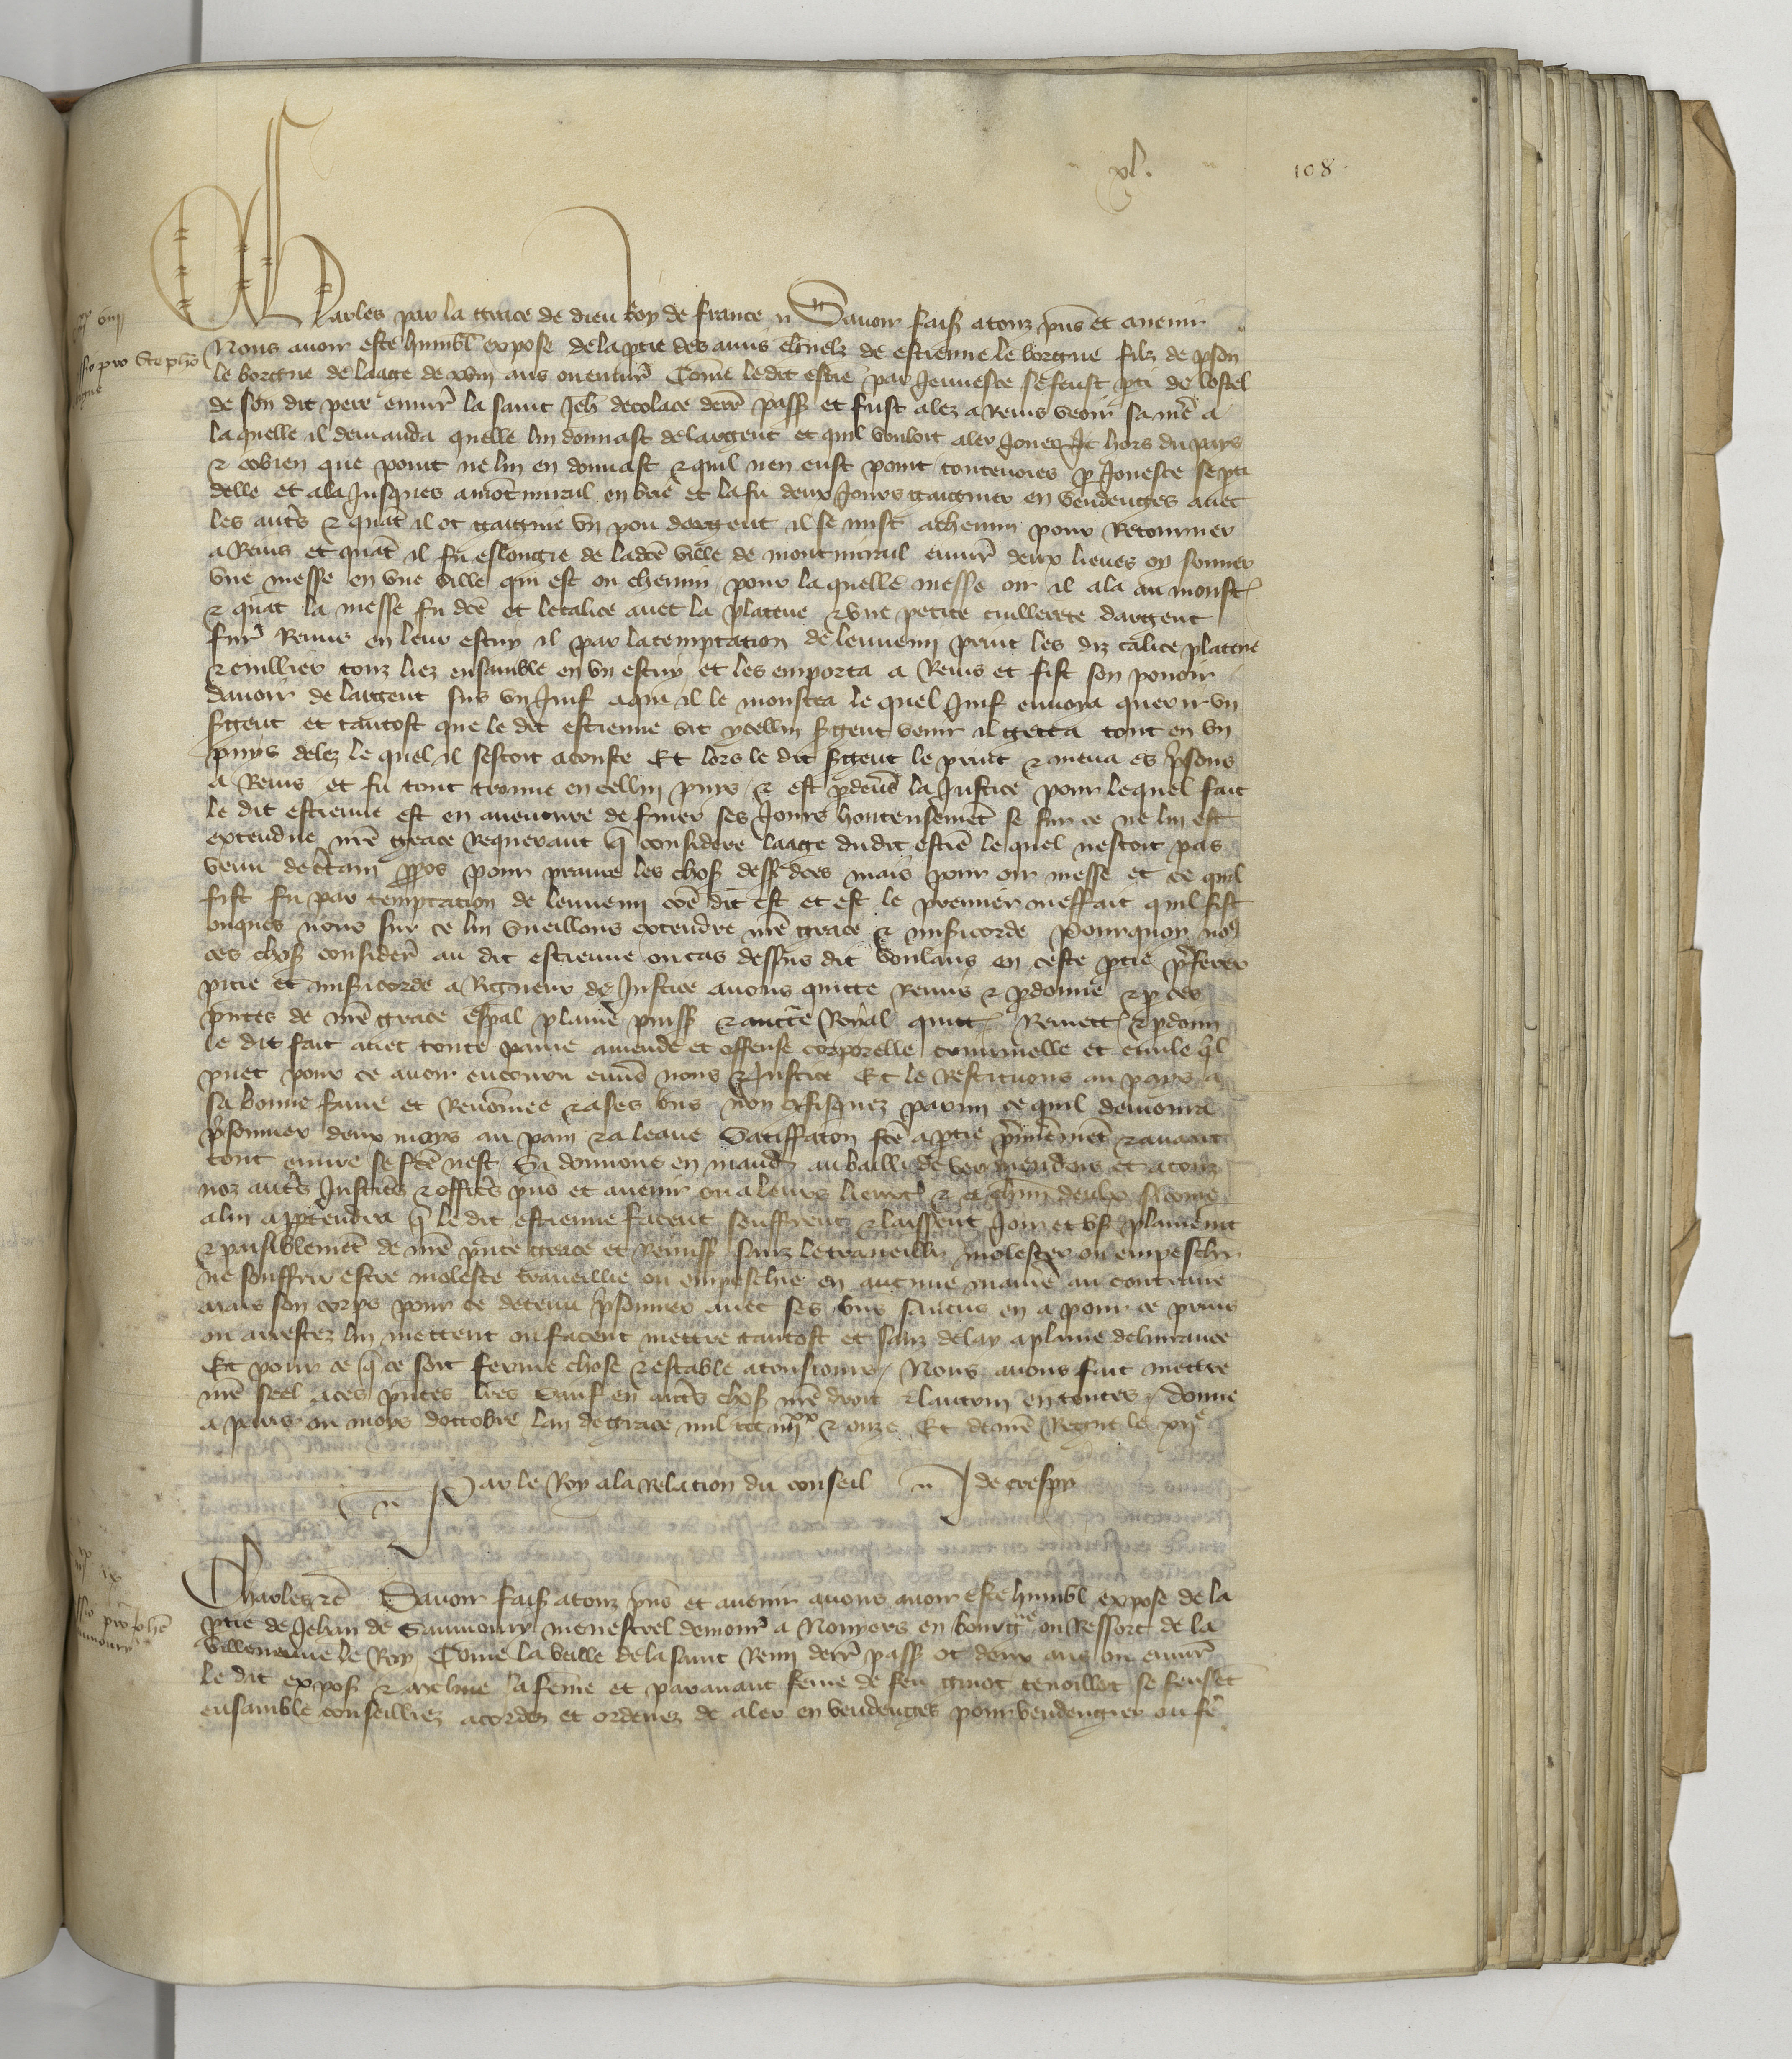 xl.
108
Charles par la grace de dieu Roy de france Savoir faisons a touz pns et avenir
Nous avoir este humbl expose de la ptie des amis charnelz de estienne le borgne filz de pson
le borgne de laage de xviii ans ou environ Come le dit estie par Jeunesce se feust pti de lostel
de son dit pere environ la saint Jeh decolace derr pass et fust alez a Reins veoir sa me a
la quelle il demanda quelle lui donnast de largent et quil vouloit aler hors du pays
& cobien que point ne lui en donnast & quil nen eust point toutevoies p Jonesce se pti
delle et ala Jusques a mot mirail en brie et la fu deux Jours gaigner en vendenges avec
les autrs & quat il ot gaignie un pou dargent il se mist a chemin pour Retourner
a Reins et quat il fu eslongie de ladce ville de montmirail envir deux lieues oy sonner
une messe en une ville qui est ou chemin pour la quelle messe oir il ala au moust
& quat la messe fu dce et le calice avec la platene & une petite cuillerete dargent
fur Remis en leur estuy il par la temptacion de lennemi print les diz calice platene
& cuillier touz liez ensamble en un estuy et les emporta a Reins et fist son pouoir
davoir de largent sus un Juif a qui il le monstra le quel Juif envoya querir un
sgent et tantost que le dit estienne vit ycellui sgent venir il getta tout en un
puys delez le quel il sestoit acouste Et lors le dit sgent le print & mena es psons
a Reins et fu tout trouve en cellui puys & est pdevs la Justice pour lequel fait
le dit estienne est en aventure de finer ses Jours honteusemet se sur ce ne lui est
extendue nre grace Requerant q considere laage du dit estie lequel nestoit pas
venu de ctain ppos pour prenre les choses dess dces mais pour oir messe et ce quil
fist fu par temptacion de lennemi coe dit est et est le premier meffait quil fist
onques nous sur ce lui vueillons extendre nre grace & misicorde Pourquoy nos
ces choses consider au dit estienne ou cas dessus dit voulans en ceste ptie pferer
pitie et misicorde a Rigueur de Justice avons quitte Remis & pdonne & p ces
pntes de nre grace espal plaine puiss & aucte Royal quitt Remett & pdonn
le dit fait avec toute paine amende et offense corporelle criminelle et civile ql
puet pour ce avoir encouru envs nous & Justice Et le Restituons au pays a
sa bonne fame et Renomee & a ses bns non cfisquez parmi ce quil demoura
psonnier deux moys au pain & a leaue Satiffacon fce a ptie & avant
tout euvre se fce nest Si donnons en mandement au bailli de vermendois et a touz
noz autrs Justicrs & officrs pns et avenir ou a leurs lieuxt & a chun deulx si come
a lui apptendra q le dit estienne facent seuffrent & laissent Joir et user plainemt
& paisiblemet de nre pnte grace et Remiss sanz le travaillier molester ou empeschr
ne souffrir estre moleste travaillie ou empeschie en aucune maniere au contraire
mais son corps pour ce detenu psonnier avec ses bns saucuns en a pour ce prins
ou arrestez lui mettent ou facent mettre tantost et sanz delay a plaine delivrance
Et pour ce q ce soit ferme chose & estable a tousiours Nous avons fait mettre
nre seel a ces pntes lres Sauf en autrs choses nre droit & lautrui en toutes donne
a paris ou moys doctobre lan de grace mil ccc iiiixx & onze Et de nre Regne le xiie
Par le Roy a la Relation du conseil J de crespy
Charles &c Savoir faisons a touz pns et avenir avoir este humbl expose de la
ptie de Jehan de Saumoury menestrel demour a Nouyers en bourgne ou Ressort de la
Villeneuve le Roy Come la veille de la saint Remi derr pass ot deux ans ou envir
le dit expos & sa feme et paravant feme de feu se feusset
ensamble conseilliez acordez et ordenez de aler en vendenges pour vendengier ou fe